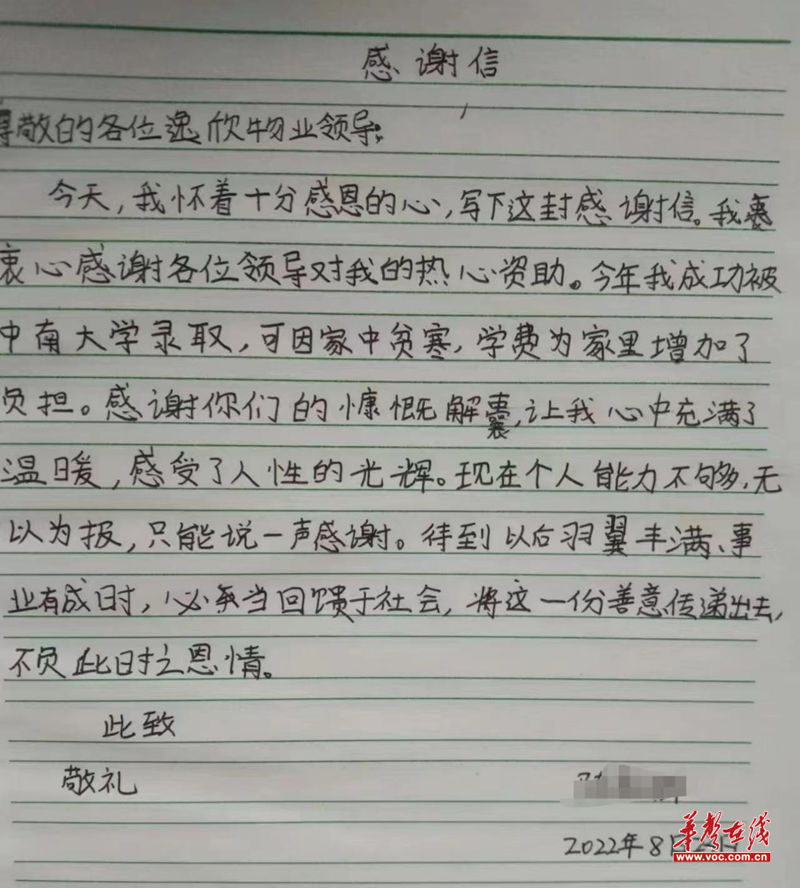 感谢信
尊敬的各位逸欣物业领导:
今天,我怀着十分感恩的心,写下这封感谢信。我
衷心感谢各位领导对我的热心资助。今年我成功被
中南大学录取,可因家中贫寒,学费为家里增加了
负担。感谢你们的慷慨解囊,让我心中充满了
温暖,感受了人性的光辉。现在个人能力不够,无
以为报,只能说一声感谢。待到以后羽翼丰满、事
业有成时,必当回馈于社会,将这一份善意传递出去,
不负此时之恩情。
此致
敬礼
2022年8月
华声在线
www.voc.com.cn